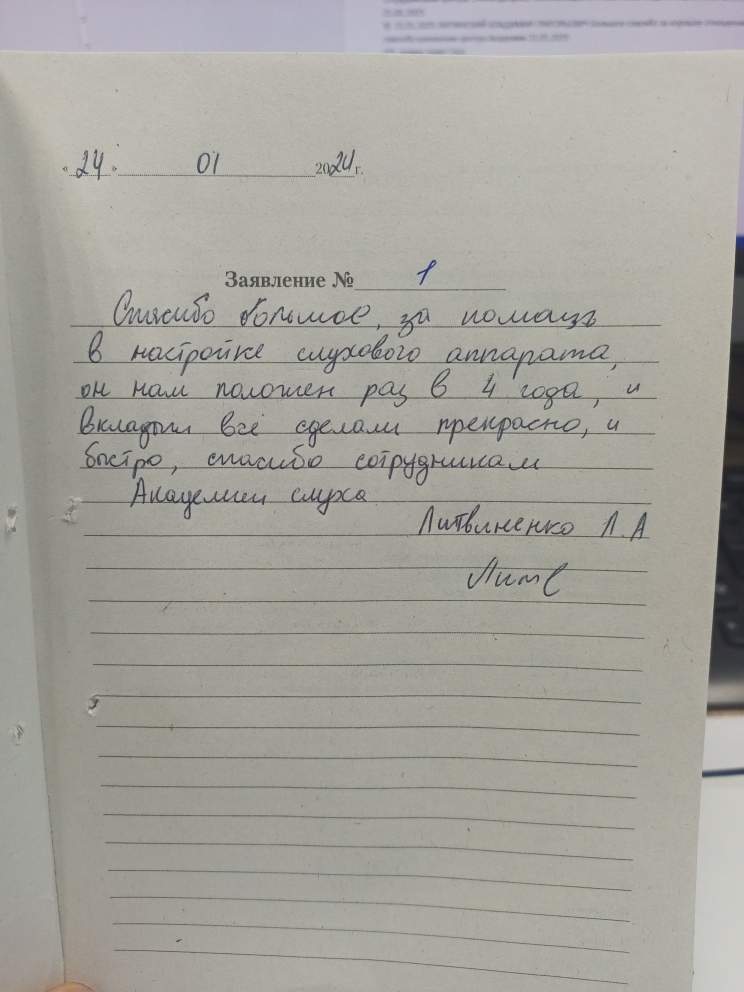 «24» 01 2024 г.
Заявление № 1
Спасибо большое, за помощь
в настройке слухового аппарата,
он нам положен раз в 4 года, и
вкладыш всё сделали прекрасно, и
быстро, спасибо сотрудникам
Академии слуха
Литвиненко Л.А